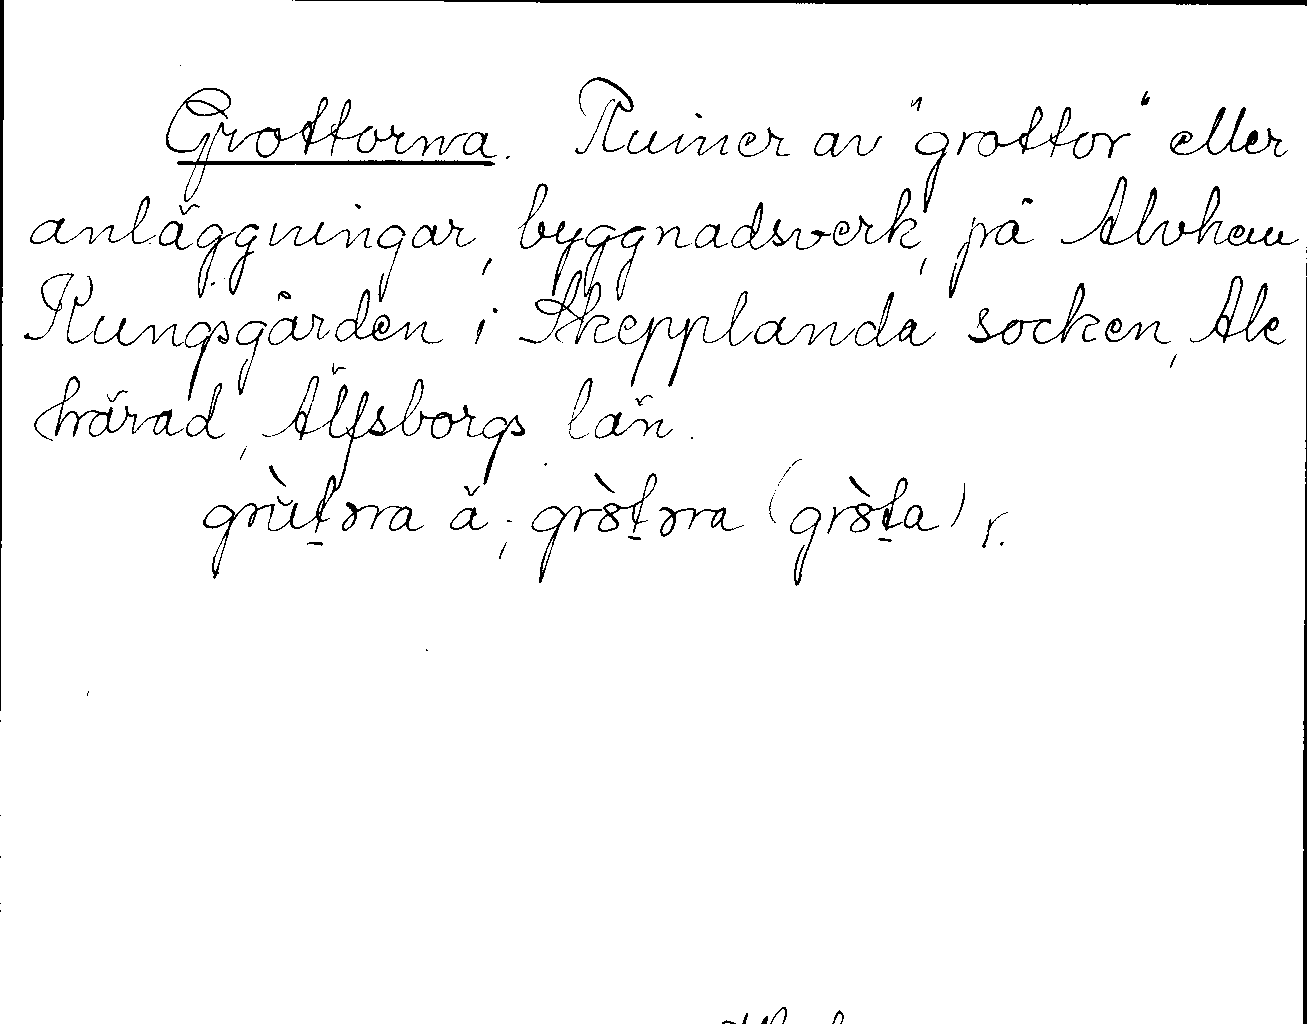 Grottorna. Ruiner av "grottor" eller
anläggningar, byggnadsverk, på Alvhem
Kungsgården i Skepplanda socken, Ale
härad, Älfsborgs län.
grùtәrra ä; gròtәrra (gròta) r.